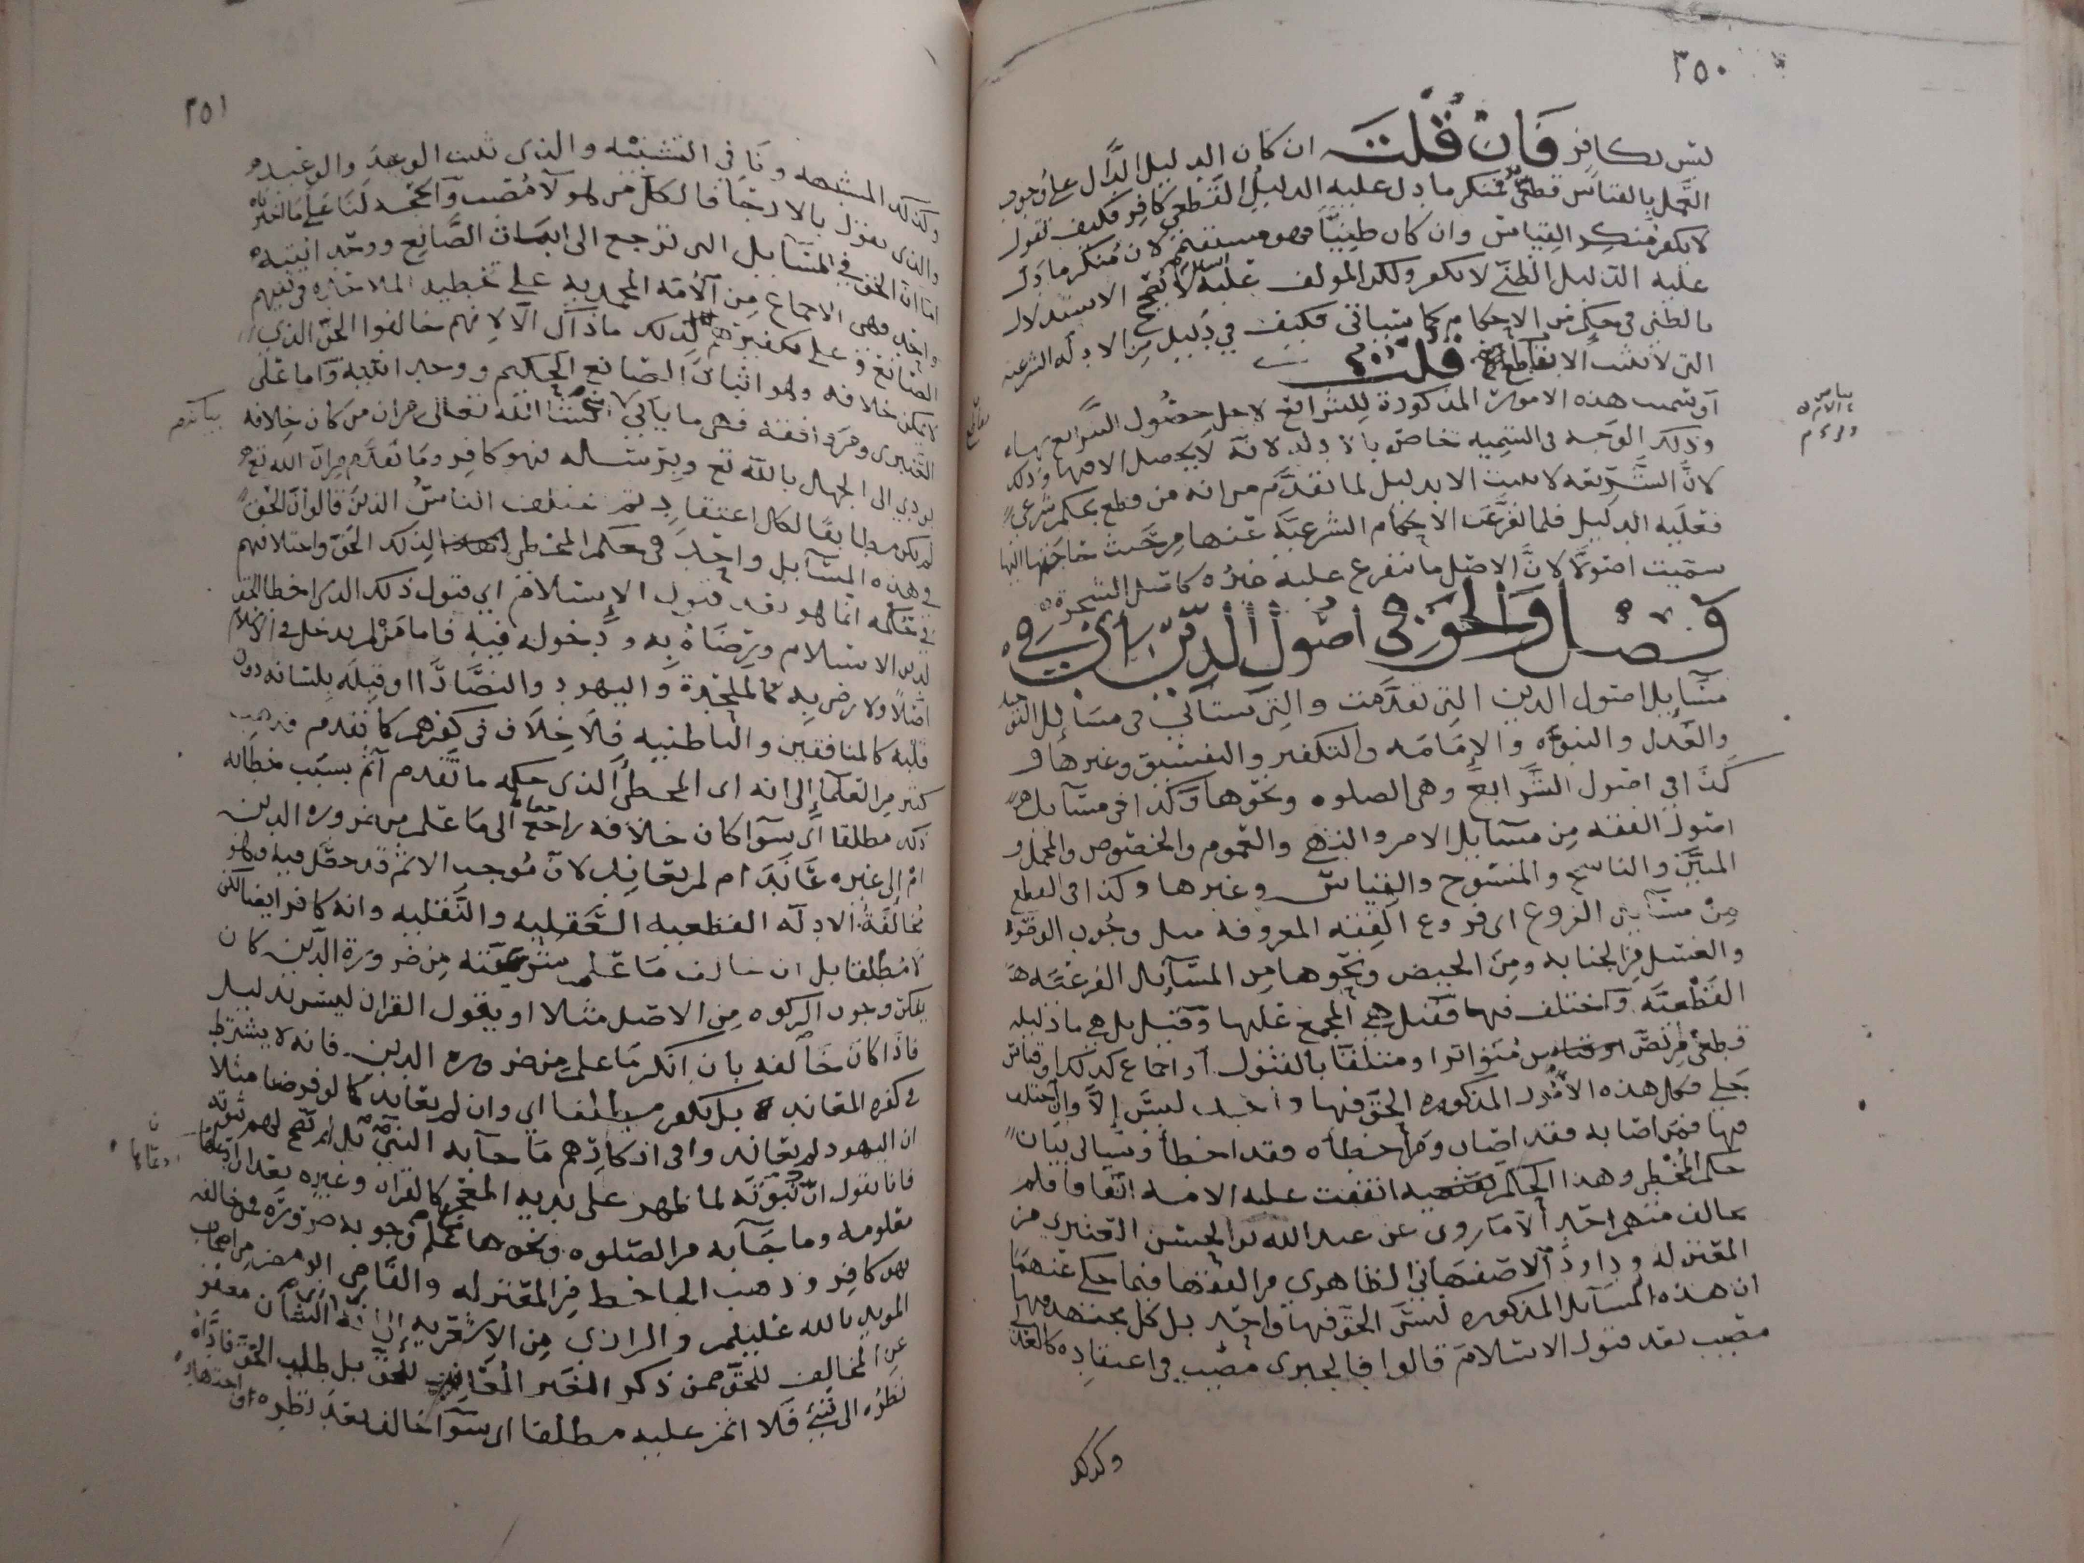 ٣٥٠
ليس بكافر فان قلت ان كان الدليل الدال على وجوب
العمل بالقياس قطعي فمنكر ما دل عليه الدليل القطعي كافر فكيف تقول
لا يكفر منكر القياس وان كان ظنيا فهو مستقيم لان منكر ما دل
عليه الدليل الظني لا يكفر ولكن المولف عليه السلم لا يصح الاستدلال
بالظني في حكم من الاحكام كما سياتي فكيف في دليل من الادله الشرعيه
التي لا تثبت الا بقاطع قلت
او سميت هذه الامور المذكورة للشرائع لاجل حصول الشرائع بها
وذلك الوجه في التسميه خاص بالادله لانه لا يحصل الا منها وذلك
لان الشريعه لا تثبت الا بدليل لما تقدم من انه من قطع بحكم شرعي
فعليه الدليل فلما تفرعت الاحكام الشرعية عنها من حيث حاجتها اليها
سميت اصولا لان الاصل ما يتفرع عليه غيره كاصل الشجرة
فصل والحق في اصول الدين اي في
مسايل اصول الدين التي تقدمت والتي ستاتي في مسايل التوحيد
والعدل والنبوة والإمامه والتكفير والتفسيق وغيرها و
كذا في اصول الشرايع وهي الصلوه ونحوها وكذا في مسايل
اصول الفقه من مسايل الامر والنهي والعموم والخصوص والمجمل و
المبين والناسخ والمنسوخ والقياس وغيرها وكذا في القطعي
من مسايل الفروع اي فروع الفقه المعروفه مثل وجوب الوضوء
والغسل من الجنابه ومن الحيض ونحوها من المسايل الفرعيه
القطعية واختلف فيها فقيل هي المجمع عليها وقيل بل هي ما دليله
قطعي من نص متواترا ومتلقا بالقبول او اجماع كذلك او قياس
جلي فكل هذه الأمور المذكوره الحق فيها واحد ليس إلا وان اختلف
فيها فمن اصابه فقد اصاب ومن اخطأه فقد اخطأ وسيأتي بيان
حكم المخطي وهذا الحكم اتفقت عليه الامه اتفاقا فلم
يخالف منهم احد الا ما روى عن عبد الله بن الحسن العنبري من
المعتزله وداود الاصفهاني الظاهري من الفقها فيما حكي عنهما
ان هذه المسايل المذكوره ليس الحق فيها واحد بل كل مجتهد فيها
مصيب بعد قبول الاسلام قالوا فالجبري مصيب في اعتقاده كالعدلي
وكذلك
٣٥١
وكذلك المشبهه ونافي التشبيه والذي يثبت الوعد والوعيد
والذي يقول بالارجا فالكل من هولا مصيب والحجه لنا على ما اخترناه
اما ان الحق في المسايل التي ترجع الى اثبات الصانع ووحدانيته
واحد فهي الاجماع من الأمة المحمدية على تخطيه الملاحده في نفيهم
الصانع وعلى تكفيرهم لذلك ما ذاك الا لانهم خالفوا الحق الذي
لا يمكن خلافه وهو اثبات الصانع الحكيم ووحدانيته واما على
العنبري ومن وافقه فهي ما ياتي ان شاء الله تعالى من ان من كان خلافه
يودي الى الجهل بالله تع وبرسله فهو كافر وما تقدم من ان الله تع
لم يكن مطابقا لكل اعتقاد ثم يختلف الناس الذين قالوا ان الحق
في هذه المسايل واحد في حكم المخطي لذلك الحق واختلافهم
في حكمه انما هو بعد قبول الإسلام اي قبول ذلك الذي اخطا الحق
لدين الاسلام ورضاه به ودخوله فيه فاما من لم يدخل في الاسلام
اصلا ولا رضي به كالملحدة واليهود والنصارا او قبله بلسانه دون
قلبه كالمنافقين والباطنيه فلا خلاف في كفرهم كما تقدم فذهب
كثير من العلما إلى انه اى المخطي الذي حكمه ما تقدم آثم بسبب خطائه
ذلك مطلقا اي سوا كان خلافه راجعا الى ما علم من ضروره الدين
ام الى غيره عاند ام لم يعاند لان موجب الاثم قد حصل فيه وهو
مخالفة الادلة القطعيه العقليه والنقليه وانه كافر ايضا لكن
لا مطلقا بل ان خالف ما علم من ضرورة الدين كان
ينكر وجوب الزكوه من الاصل مثلا او يقول القران ليس بدليل
فاذا كان خالفه بان انكر ما علم من ضروره الدين فانه لا يشترط
في كفره المعانده بل يكفر مطلقا اي وان لم يعاند كما لو فرضنا مثلا
ان اليهود لم يعاند وافي انكارهم ما جا به النبي بل لم تصح لهم نبوته
فانا نقول ان نبوته لما ظهر على يديه المعجز كالقران وغيره بعد ادعائها
معلومه وما جا به من الصلوه ونحوها علم وجوبه ضرورة فمن خالفه
فهو كافر وذهب الجاحظ من المعتزله والقاضي ابو مضر من اصحاب
المويد بالله عليلم والرازي من الاشعريه إلى انه الشان معفو
عن المخالف للحق ممن ذكر الغير المعاند للحق بل طلب الحق فاداه
نظره الى شي فلا اثم عليه مطلقا اي سوا خالف بعد نظره واجتهاده